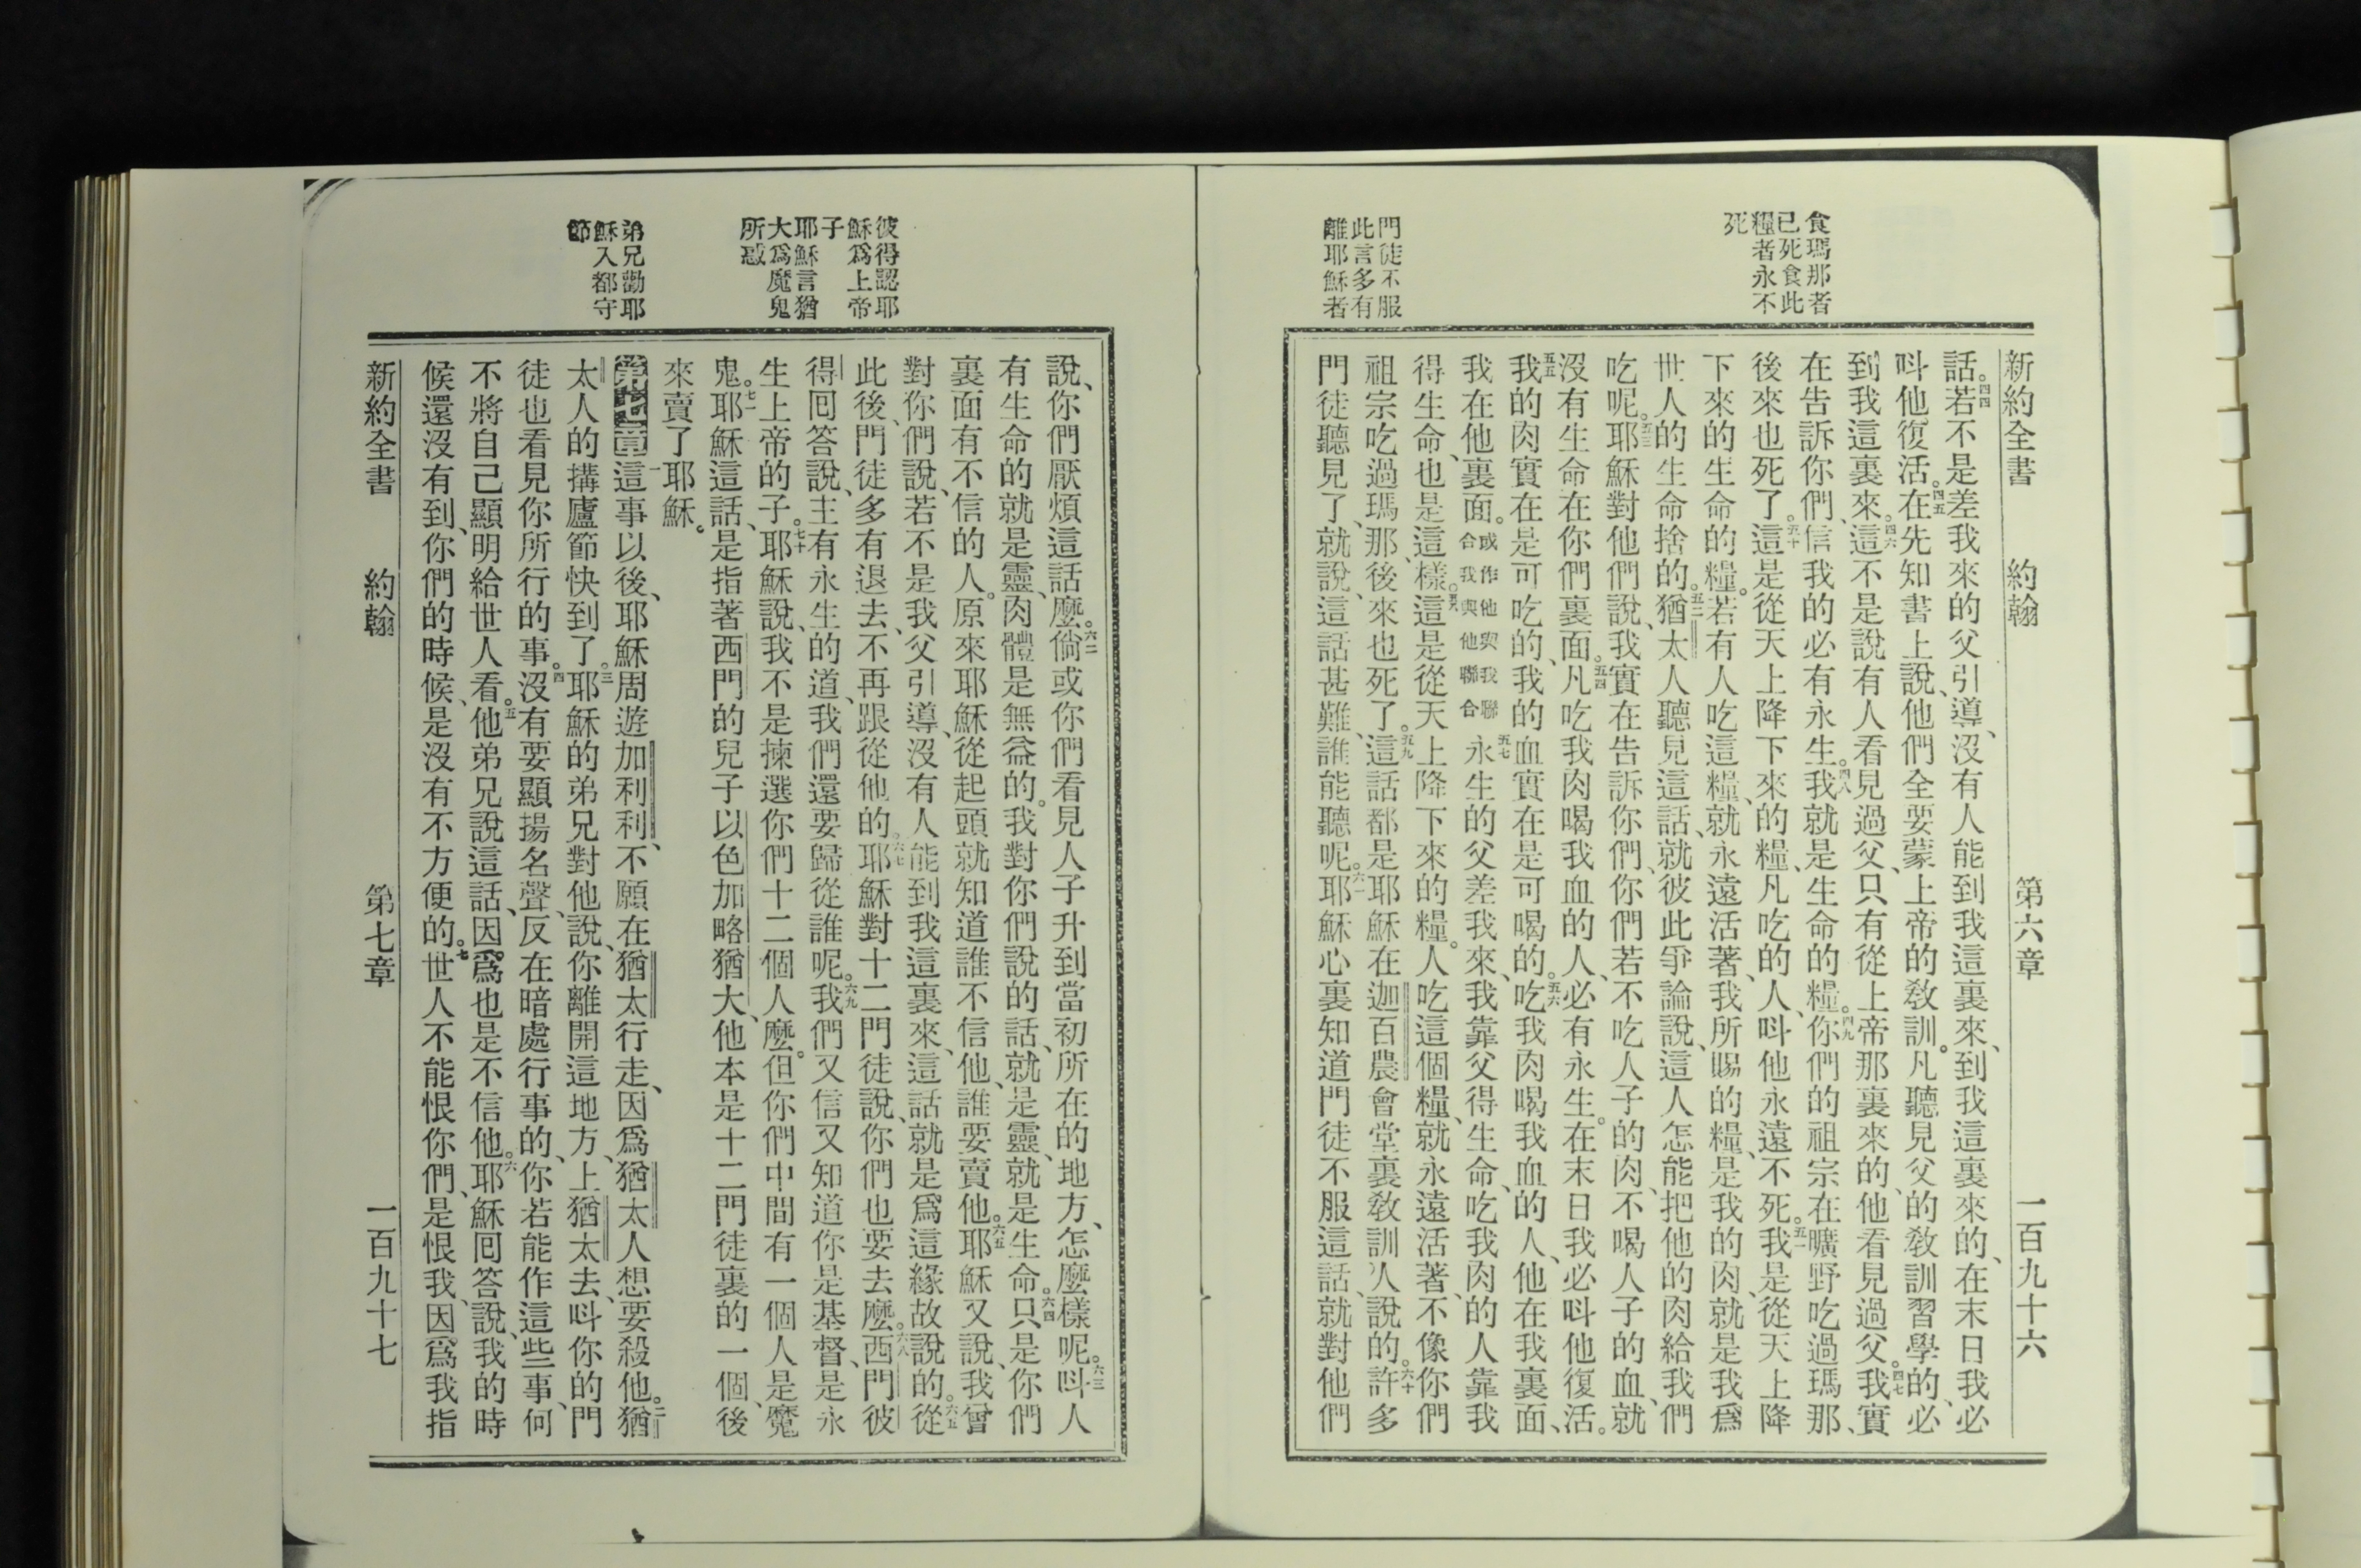 食瑪那者
已死食此
糧者永不
死
門徒不服
此言多有
離耶穌者
新約全書 約翰 第六章 一百九十六
話。四四若不是差我來的父引導、沒有人能到我這裏來、到我這裏來的、在末日我必
呌他復活。四五在先知書上說、他們全要蒙上帝的敎訓。凡聽見父的敎訓習學的、必
到我這裏來。四六這不是說有人看見過父、只有從上帝那裏來的、他看見過父。四七我實
在告訴你們、信我的必有永生。四八我就是生命的糧。四九你們的祖宗在曠野吃過瑪那、
後來也死了。五十這是從天上降下來的糧、凡吃的人、呌他永遠不死。五一我是從天上降
下來的生命的糧。若有人吃這糧、就永遠活著、我所賜的糧、是我的肉、就是我爲
世人的生命捨的。五二猶太人聽見這話、就彼此爭論說、這人怎能把他的肉給我們
吃呢。五三耶穌對他們說、我實在告訴你們、你們若不吃人子的肉、不喝人子的血、就
沒有生命在你們裏面。五四凡吃我肉喝我血的人、必有永生。在末日我必呌他復活。
五五我的肉實在是可吃的、我的血實在是可喝的。五六吃我肉喝我血的人、他在我裏面、
我在他裏面。或作他與我聯合我與他聯合五七永生的父差我來、我靠父得生命、吃我肉的人靠我
得生命、也是這樣。五八這是從天上降下來的糧。人吃這個糧、就永遠活著、不像你們
祖宗吃過瑪那、後來也死了。五九這話都是耶穌在迦百農會堂裏敎訓人說的。六十許多
門徒聽見了、就說、這話甚難、誰能聽呢。六一耶穌心裏知道門徒不服這話、就對他們
彼得認耶
穌爲上帝
子
耶穌言猶
大爲魔鬼
所惑
弟兄勸耶
穌入都守
節
說、你們厭煩這話麼。六二倘或你們看見人子升到當初所在的地方、怎麼樣呢。六三呌人
有生命的就是靈、肉體是無益的。我對你們說的話、就是靈、就是生命。六四只是你們
裏面有不信的人。原來耶穌從起頭就知道誰不信他、誰要賣他。六五耶穌又說、我曾
對你們說、若不是我父引導、沒有人能到我這裏來、這話就是爲這緣故說的。六五從
此後、門徒多有退去、不再跟從他的。六七耶穌對十二門徒說、你們也要去麼。六八西門彼
得回答說、主有永生的道、我們還要歸從誰呢。六九我們又信又知道你是基督、是永
生上帝的子。七十耶穌說、我不是揀選你們十二個人麼。但你們中間有一個人是魔
鬼。七一耶穌這話、是指著西門的兒子以色加略猶大、他本是十二門徒裏的一個、後
來賣了耶穌。
第七章 一這事以後、耶穌周遊加利利、不願在猶太行走、因爲猶太人想要殺他。二猶
太人的搆廬節快到了。三耶穌的弟兄對他說、你離開這地方、上猶太去、呌你的門
徒也看見你所行的事。四沒有要顯揚名聲、反在暗處行事的、你若能作這些事、何
不將自己顯明給世人看。五他弟兄說這話、因爲也是不信他。六耶穌回答說、我的時
候還沒有到、你們的時候、是沒有不方便的。七世人不能恨你們、是恨我、因爲我指
新約全書 約翰 第七章 一百九十七